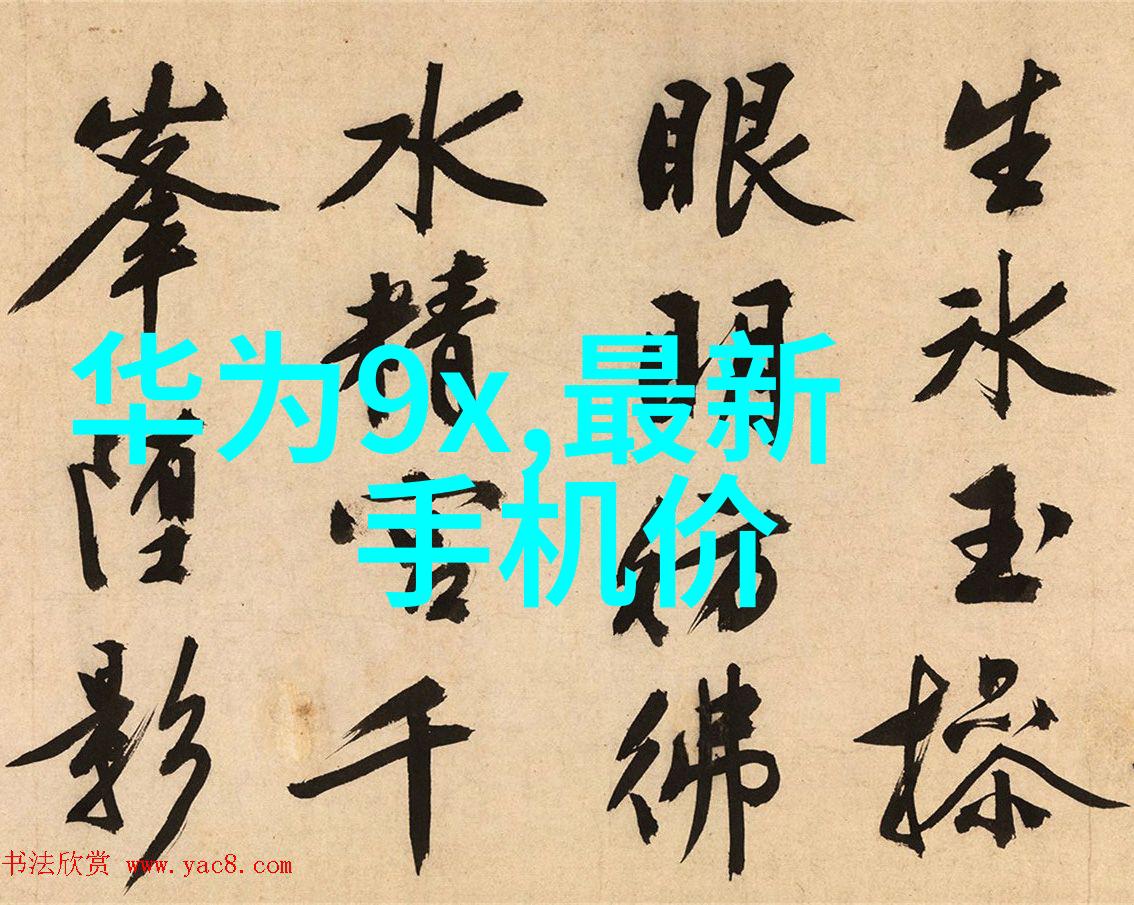 生氷玉操
眼明彷彿
水精宮千
峯墮影
华为9x,最新
手机价
书法欣赏 www.yac8.com